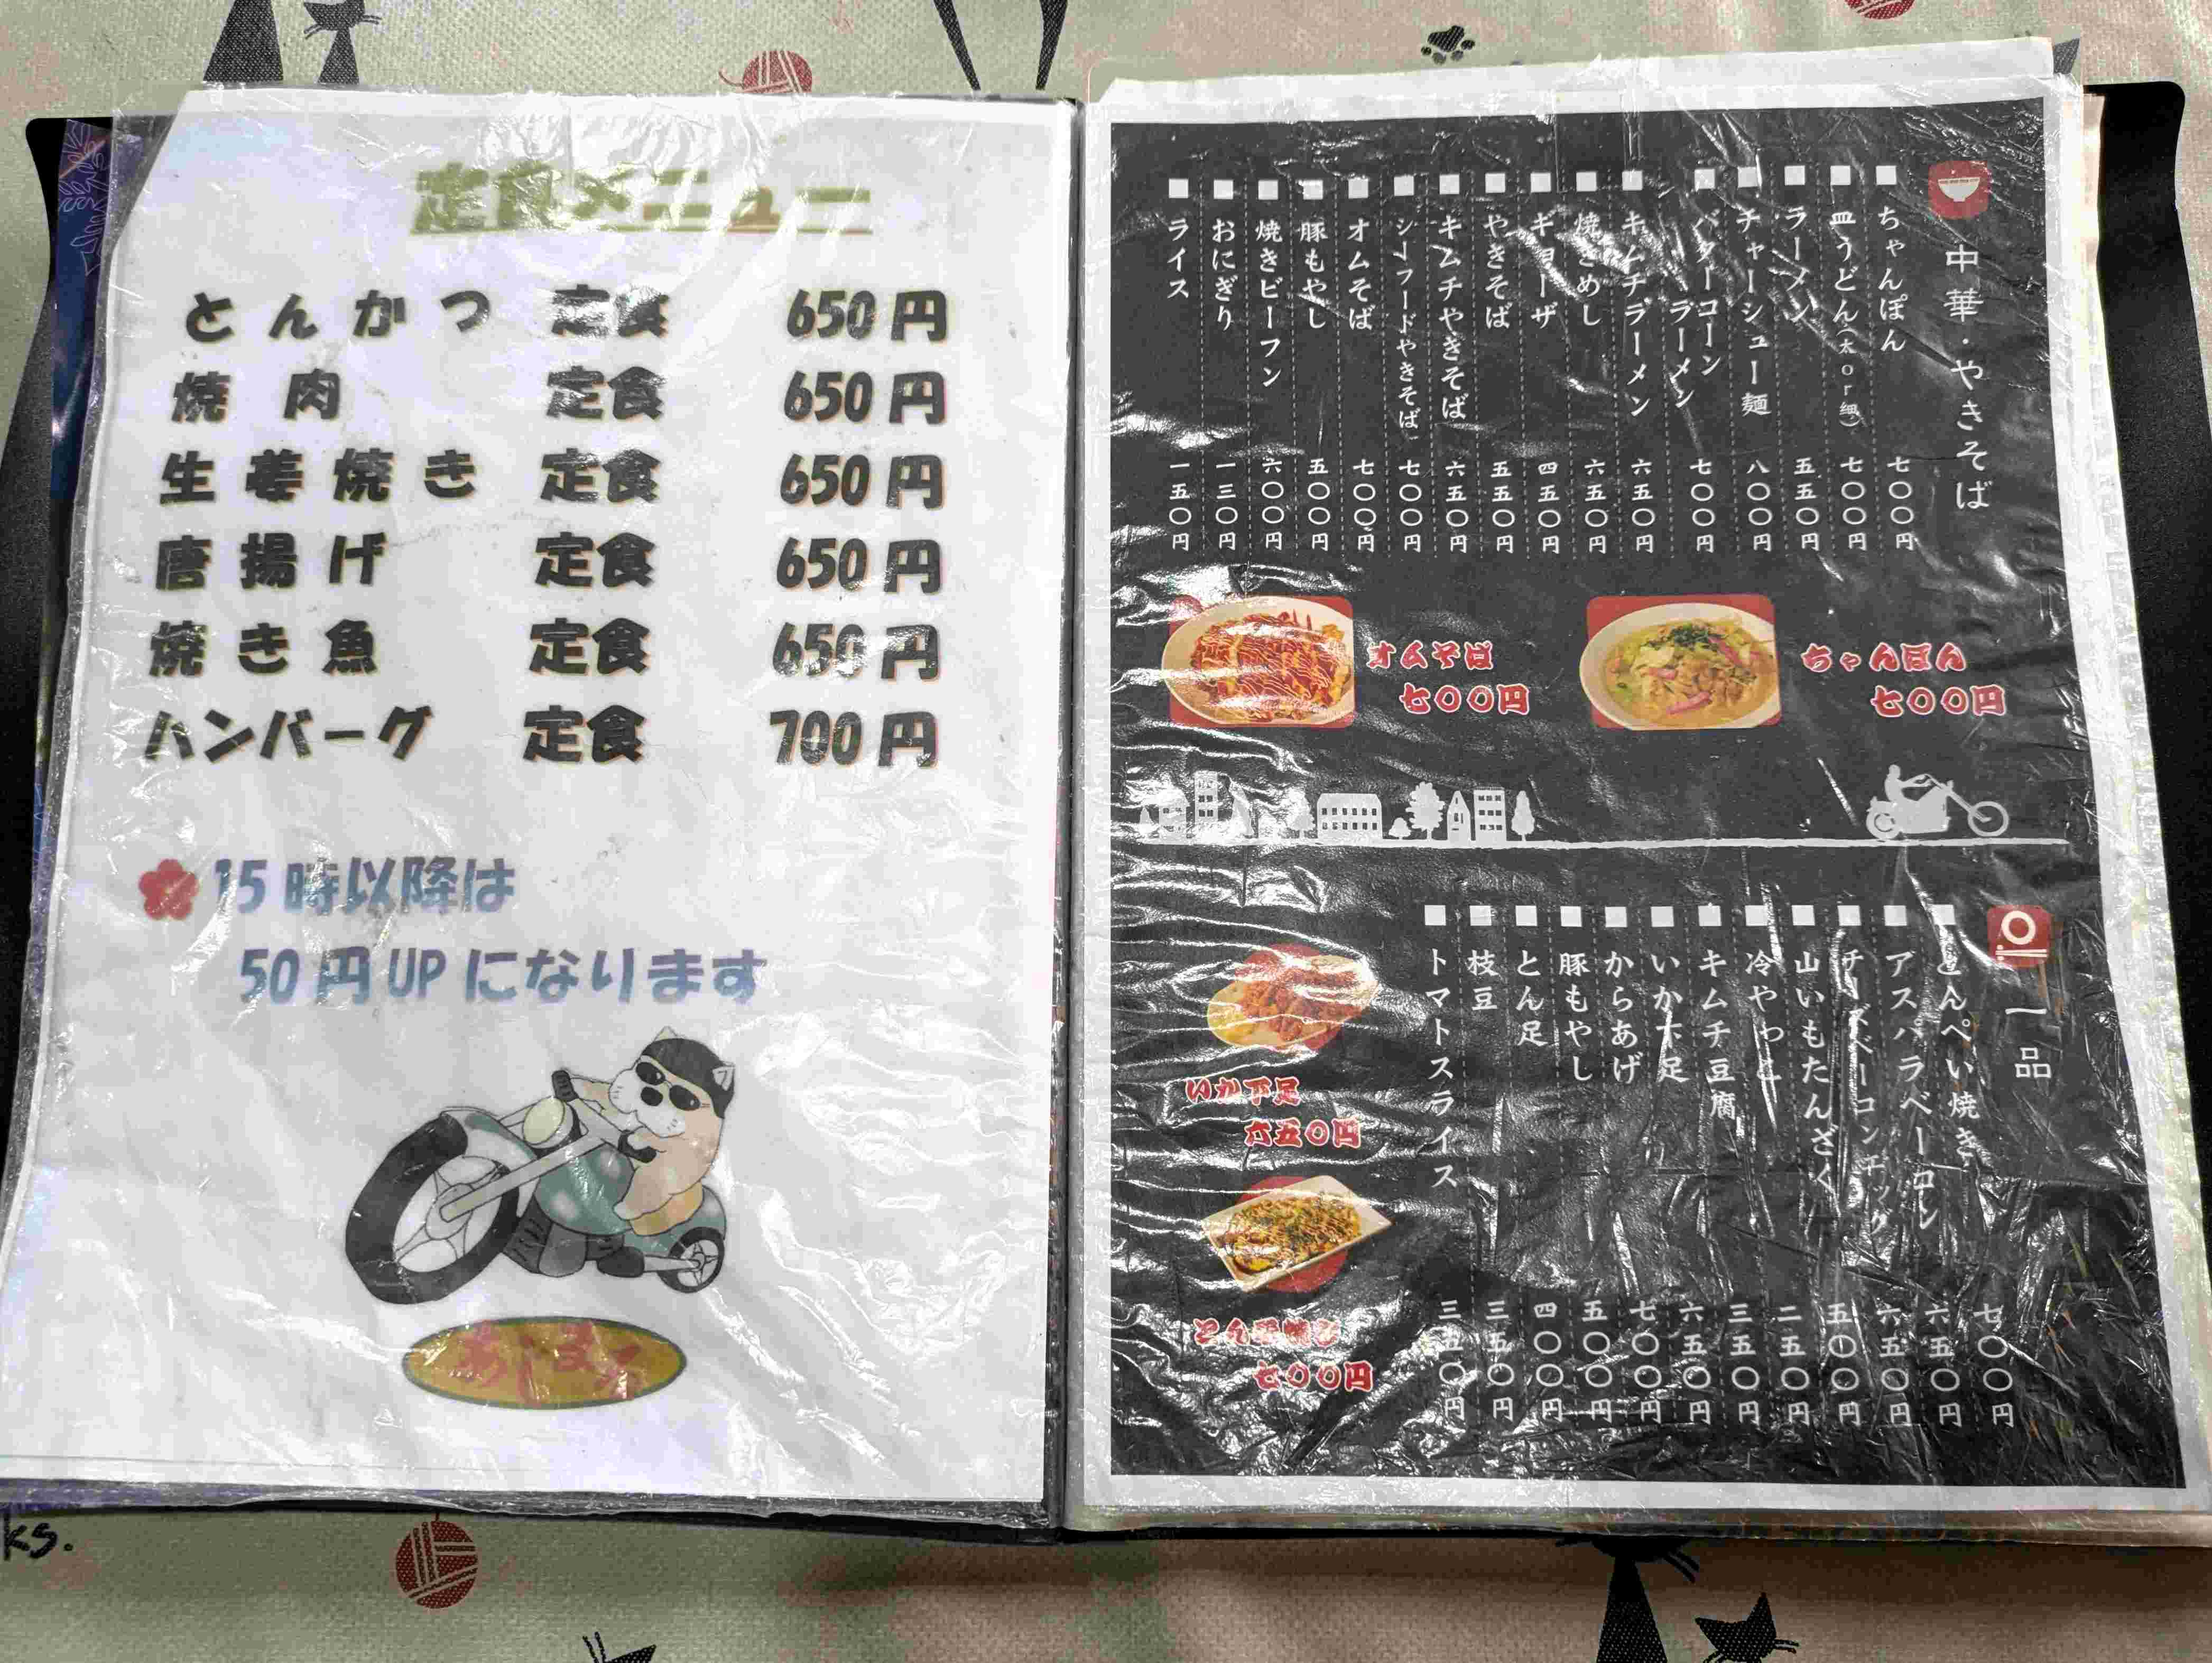 定食メニュー
とんかつ 定食 650円
焼肉 定食 650円
生姜焼き 定食 650円
唐揚げ 定食 650円
焼き魚 定食 650円
ハンバーグ 定食 700円
15時以降は
50円UPになります
中華・やきそば
ちゃんぽん 七〇〇円
皿うどん(太or細) 七〇〇円
ラーメン 五五〇円
チャーシュー麺 八〇〇円
バターコーンラーメン 七〇〇円
キムチラーメン 六五〇円
焼きめし 六五〇円
ギョーザ 四五〇円
やきそば 五五〇円
キムチやきそば 六五〇円
シーフードやきそば 七〇〇円
オムそば 七〇〇円
豚もやし 五〇〇円
焼きビーフン 六〇〇円
おにぎり 一三〇円
ライス 一五〇円
オムそば
七〇〇円
ちゃんぽん
七〇〇円
一品
とんぺい焼き 七〇〇円
アスパラベーコン 六五〇円
チーズベーコンエッグ 六五〇円
山いもたんざく 五〇〇円
冷やっこ 二五〇円
キムチ豆腐 三五〇円
いか下足 六五〇円
からあげ 七〇〇円
豚もやし 五〇〇円
とん足 四〇〇円
枝豆 三五〇円
トマトスライス 三五〇円
いか下足
六五〇円
七〇〇円
ks.